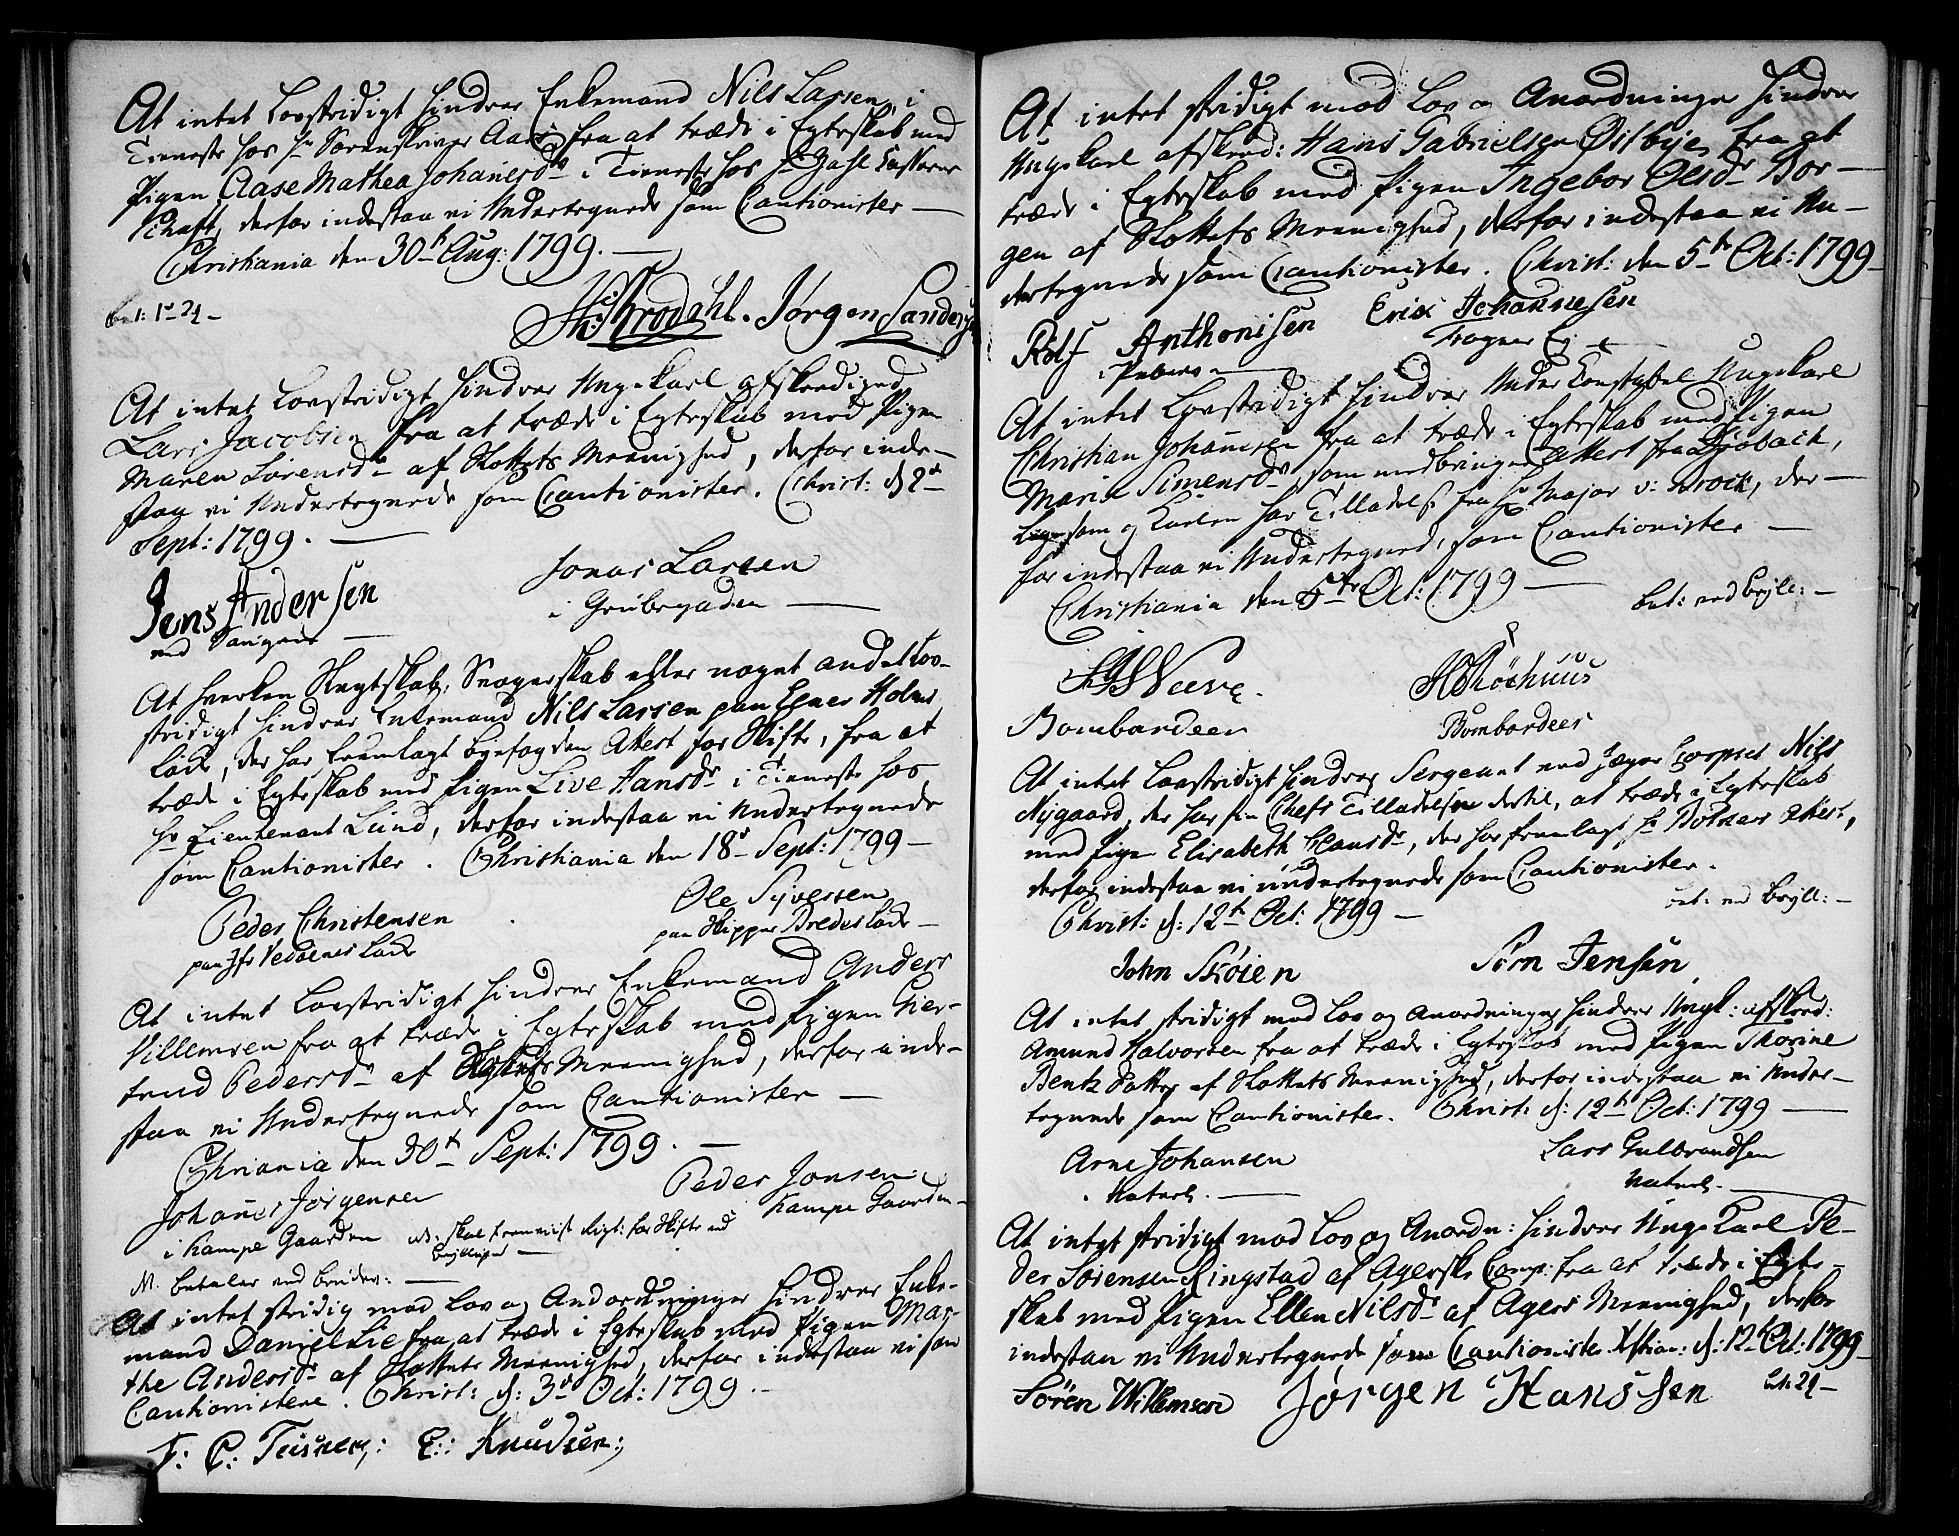 At intet Lovstridigt hindrer Enkemand Nils Larsen, i
Tieneste hos Hr Sorenskriver fra at træde i Egteskab med
Pigen Aase Mathea Johanesdr i Tieneste hos Hr
derfor indestaa vi Undertegnede som Cautionister —
Christiania den 30te Aug: 1799. —
bet: 1
Brodahl. Jørgen
At intet Lovstridigt hindrer Ungekarl afskediged
Lars Jacobsen fra at træde i Egteskab med Pigen
Maren Sørensdr af Slottets Meenighed, derfor inde-
staa vi Undertegnede som Cautionister. Christ: d
Sept: 1799. —
Jens Andersen
ved
Jonas Larsen
i Grübegaden —
At hverken Slegtskab, Svogerskab eller noget andet Lov-
stridigt hindrer Enkemand Nils Larsen paa
Løcke, der har fremlagt byefogdens Attest for Skifte, fra at
træde i Egteskab med Pigen Live Hansdr i Tieneste hos
Hr Lieutenant Lund, derfor indestaa vi Undertegnede
som Cautionister. Christiania den 18de Sept: 1799 —
Peder Christensen
Ole Syversen
paa Løcke
paa Skipper Løcke —
At intet Lovstridigt hindrer Enkemand Anders
Villemsen fra at træde i Egteskab med Pigen Gier-
trud Pedersdr af Meenighed, derfor inde-
staa vi Undertegnede som Cautionister —
Chriania den 30te Sept: 1799. —
Johanes Jørgensen
i Kampe Gaarden
Peder Jonsen
Kampe Gaarden —
NB: skal fremviise for Skifte ved
Brylluppet —
N. betaler ved
At intet stridig mod Lov og Andordninger hindrer Enke-
mand Daniel Lie fra at træde i Egteskab med Pigen Mar-
the Andersdr af Slottets Meenighed, derfor indestaa vi som
Cautionistere. Christ: d: 3de Oct: 1799.
E: Knudsen;
At intet stridigt mod Lov og Anordninger hindrer
Ungekarl afskeed: Hans Gabrielsen Østbye, fra at
træde i Egteskab med Pigen Ingebor Olsdr Bor-
gen af Slottets Meenighed, derfor indestaa vi Un-
dertegnede som Cautionister. Christ: den 5te Oct: 1799 —
Rolf Anthonisen
Erix Johannesen
At intet Lovstridigt hindrer Under Konstabel Ungekarl
Christian Johannesen fra at træde i Egteskab med Pigen
Maria Simensdr, som medbringer Attest fra Drøback,
ligesom og Karlen har Tilladelse fra Hr Major v: Brock, der-
for indestaa vi Undertegned, som Cautionister —
Christiania den 5te Oct: 1799 —
bet: ved Bryll: —
Bombardeer
Bombardeer
At intet Lovstridigt hindrer Sergeant ved Jæger Corpset Nils
Nygaard, der har sin Chefs Tilladelse dertil, at træde i Egteskab
med Pigen Elisabeth Hansdr, der har fremlagt Hr Attest,
derfor indestaa vi undertegnede som Cautionister.
Christ: d: 12te Oct: 1799 —
bet: ved Bryll: —
John Skøien
Jensen
At intet stridigt mod Lov og Anordninger hindrer Ungk: afskeed:
Amund Halvorsen fra at træde i Egteskab med Pigen Thorine
Bentz Datter af Slottets Meenighed, derfor indestaa vi Under-
tegnede som Cautionister. Christ: d: 12te Oct: 1799 —
Arne Johansen
Lars Gulbrandsen
At intet stridigt mod Lov og Anordn: hindrer Unge Karl Pe-
der Sørensen Ringstad af Agerske Comp: fra at træde i Egte-
skab med Pigen Ellen Nilsdr af Agers Meenighed, derfor
indestaa vi Undertegnede som Cautionister. d: 12te Oct: 1799
Søren Willemsen Jørgen Hanssen